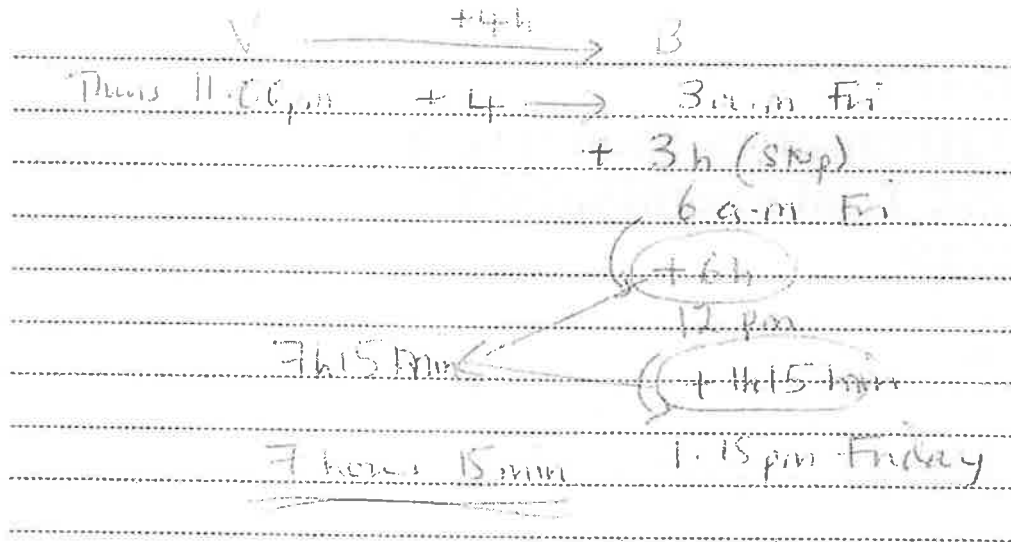 V +4h → B
Thurs 11.00pm + 4 → 3a.m Fri
+ 3h (stop)
6 a.m Fri
+ 6h
12 pm
7h15 min + 1h15 min
7 hours 15 min 1.15pm Friday